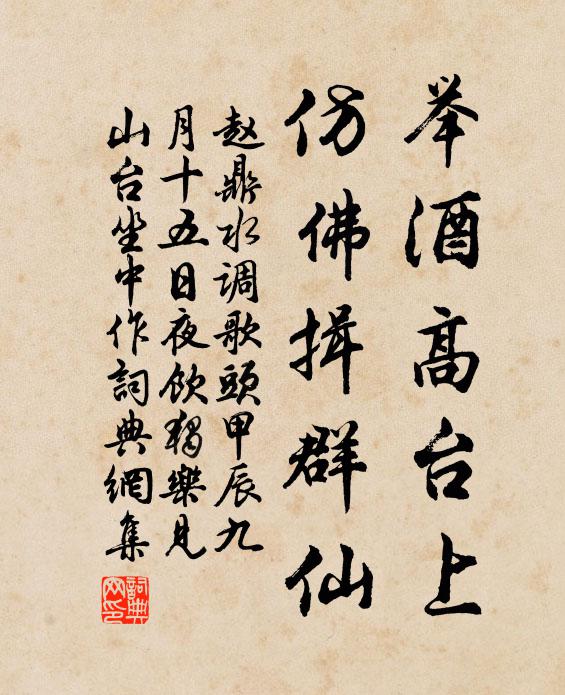 举酒高台上
仿佛揖群仙
赵鼎水調歌頭甲辰九
月十五日夜饮獨樂见
山台坐中作詞典網集
詞典网印